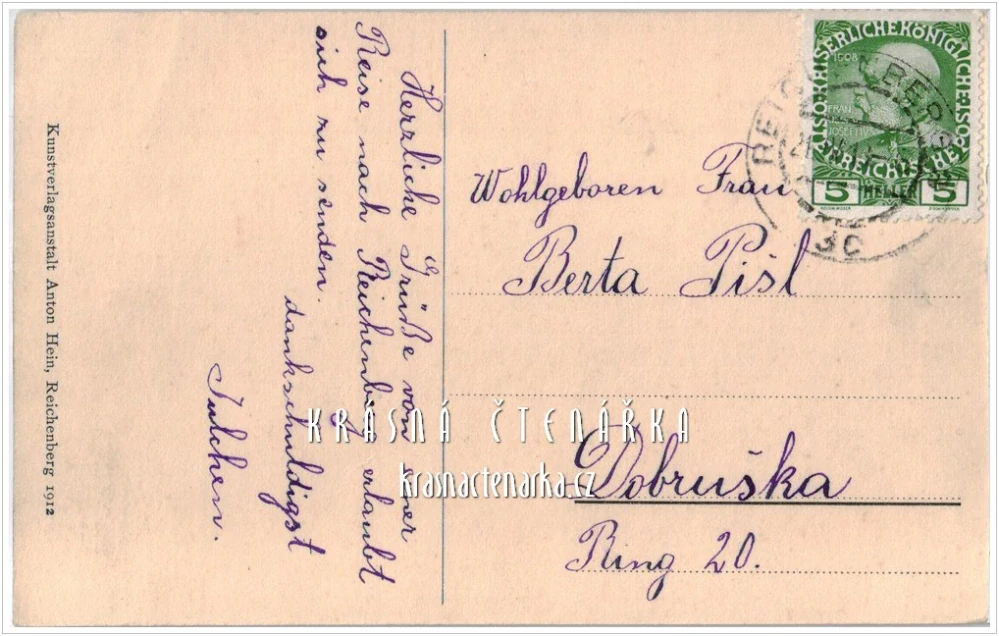 Kunstverlagsanstalt Anton Hein, Reichenberg 1912
Herzliche Grüße von einer
Reise nach Reichenberg erlaubt
sich zu senden.
dankschuldigst
Julchen.
Wohlgeboren Frau
Berta Pišl
Dobruška
Ring 20.
KAISERLICHE KÖNIGLICHE ÖSTERREICHISCHE
1908
FRANZ
JOSEF I
5 HELLER 5
REICHENBERG
3c
KRASNÁ ČTENÁŘKA
krasnactenarka.cz